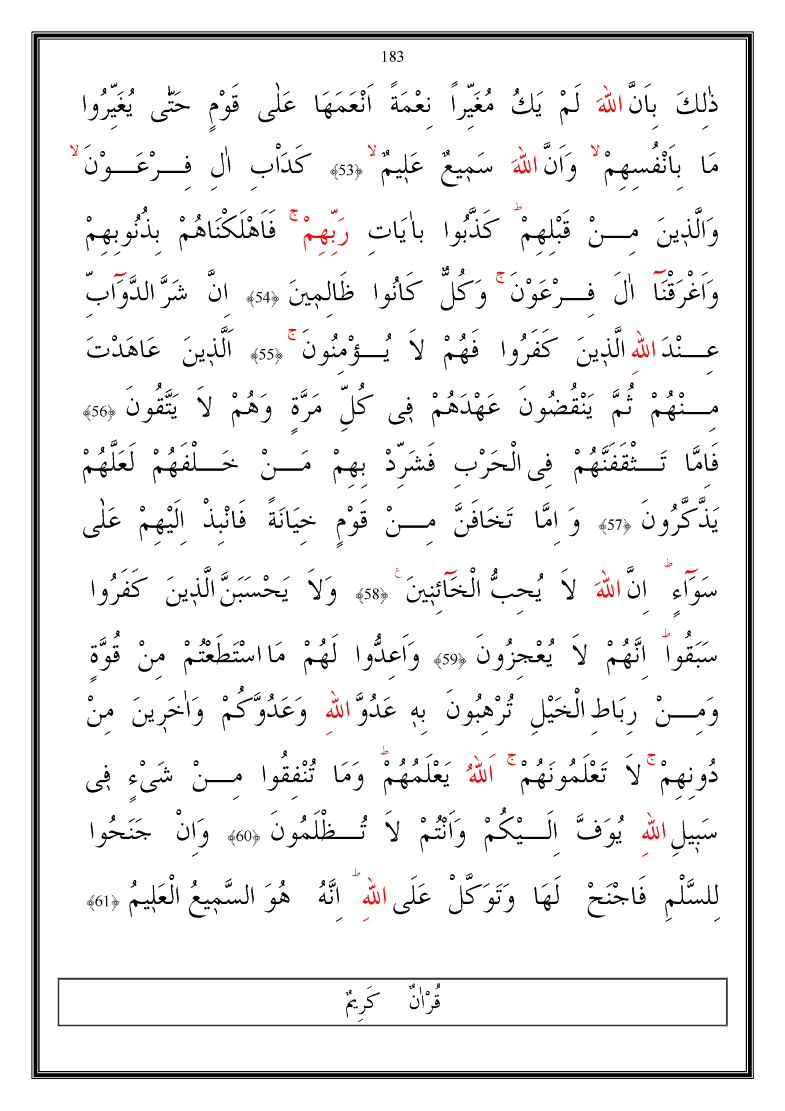 183
ذٰلِكَ بِاَنَّ اللهَ لَمْ يَكُ مُغَيِّراً نِعْمَةً اَنْعَمَهَا عَلٰى قَوْمٍ حَتّٰى يُغَيِّرُوا
مَا بِاَنْفُسِهِمْ ۙ وَاَنَّ اللهَ سَمٖيعٌ عَلٖيمٌ ۙ ﴿53﴾ كَدَاْبِ اٰلِ فِــرْعَــوْنَ ۙ
وَالَّذٖينَ مِــنْ قَبْلِهِمْ ؕ كَذَّبُوا بِاٰيَاتِ رَبِّهِمْ ۚ فَاَهْلَكْنَاهُمْ بِذُنُوبِهِمْ
وَاَغْرَقْنَٓا اٰلَ فِــرْعَوْنَ ۚ وَكُلٌّ كَانُوا ظَالِمٖينَ ﴿54﴾ اِنَّ شَرَّ الدَّوَٓابِّ
عِــنْدَ اللهِ الَّذٖينَ كَفَرُوا فَهُمْ لَا يُــؤْمِنُونَ ۚ ﴿55﴾ اَلَّذٖينَ عَاهَدْتَ
مِــنْهُمْ ثُمَّ يَنْقُضُونَ عَهْدَهُمْ فٖى كُلِّ مَرَّةٍ وَهُمْ لَا يَتَّقُونَ ﴿56﴾
فَاِمَّا تَــثْقَفَنَّهُمْ فِى الْحَرْبِ فَشَرِّدْ بِهِمْ مَــنْ خَــلْفَهُمْ لَعَلَّهُمْ
يَذَّكَّرُونَ ﴿57﴾ وَ اِمَّا تَخَافَنَّ مِــنْ قَوْمٍ خِيَانَةً فَانْبِذْ اِلَيْهِمْ عَلٰى
سَوَٓاءٍ ؕ اِنَّ اللهَ لَا يُحِبُّ الْخَٓائِنٖينَ ۧ ﴿58﴾ وَلَا يَحْسَبَنَّ الَّذٖينَ كَفَرُوا
سَبَقُوا ؕ اِنَّهُمْ لَا يُعْجِزُونَ ﴿59﴾ وَاَعِدُّوا لَهُمْ مَا اسْتَطَعْتُمْ مِنْ قُوَّةٍ
وَمِــنْ رِبَاطِ الْخَيْلِ تُرْهِبُونَ بِهٖ عَدُوَّ اللهِ وَعَدُوَّكُمْ وَاٰخَرٖينَ مِنْ
دُونِهِمْ ۚ لَا تَعْلَمُونَهُمْ ۚ اَللهُ يَعْلَمُهُمْ ؕ وَمَا تُنْفِقُوا مِــنْ شَىْءٍ فٖى
سَبٖيلِ اللهِ يُوَفَّ اِلَــيْكُمْ وَاَنْتُمْ لَا تُــظْلَمُونَ ﴿60﴾ وَاِنْ جَنَحُوا
لِلسَّلْمِ فَاجْنَحْ لَهَا وَتَوَكَّلْ عَلَى اللهِ ؕ اِنَّهُ هُوَ السَّمٖيعُ الْعَلٖيمُ ﴿61﴾
قُرْاٰنٌ كَرِيمٌ